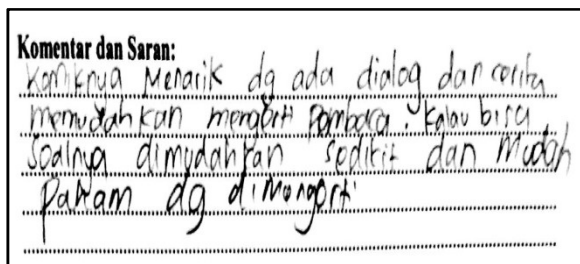 Komentar dan Saran:
Komiknya Menarik dg ada dialog dan cerita
memudahkan mengerti pembaca. Kalau bisa
Soalnya dimudahkan sedikit dan Mudah
paham dg dimengerti